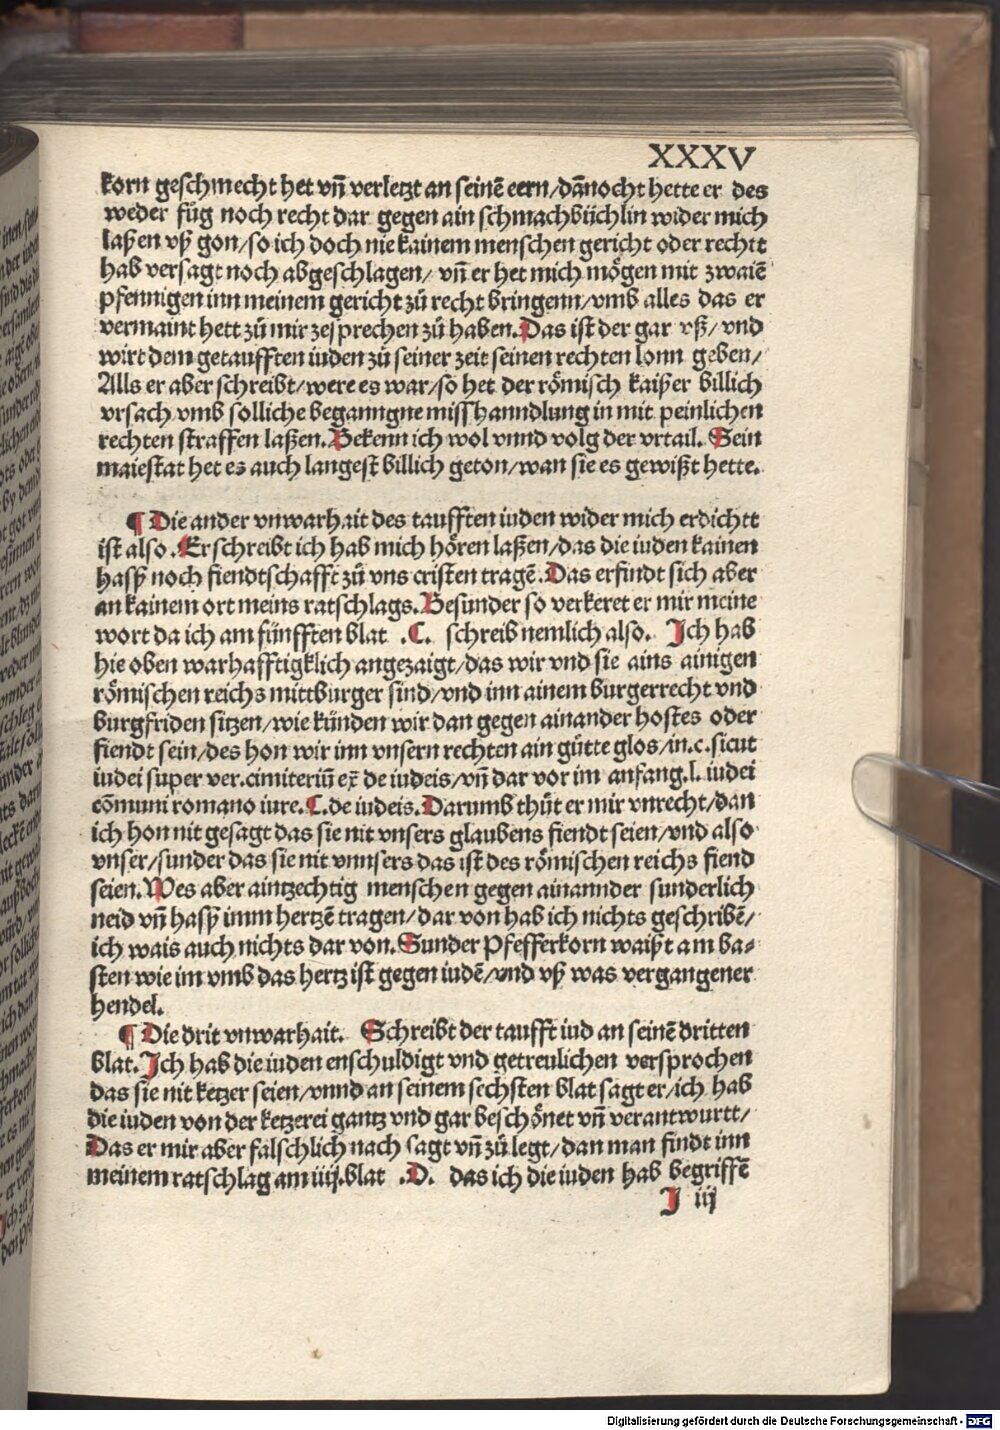 XXXV
korn geschmecht het vñ verletzt an seinẽ eern/dãnocht hette er des
weder fůg noch recht dar gegen ain schmachbüchlin wider mich
laßen vß gon/so ich doch nie kainem menschen gericht oder rechtt
hab versagt noch abgeschlagen/ vñ er het mich mögen mit zwaiẽ
pfennigen inn meinem gericht zů recht bringenn/vmb alles das er
vermaint hett zů mir zesprechen zů haben. Das ist der gar vß/vnd
wirt dem getaufften iuden zů seiner zeit seinen rechten lonn geben/
Alls er aber schreibt/were es war/so het der römisch kaißer billich
vrsach vmb solliche beganngne misshanndlung in mit peinlichen
rechten straffen laßen. Bekenn ich wol vnnd volg der vrtail. Sein
maiestat het es auch langest billich geton/wan sie es gewißt hette.
¶ Die ander vnwarhait des taufften iuden wider mich erdichtt
ist also. Er schreibt ich hab mich hören laßen/das die iuden kainen
hasß noch fiendtschafft zů vns cristen tragẽ. Das erfindt sich aber
an kainem ort meins ratschlags. Besunder so verkeret er mir meine
wort da ich am fünfften blat .C. schreib nemlich also. Ich hab
hie oben warhafftigklich angezaigt/das wir vnd sie ains ainigen
römischen reichs mittburger sind/vnd inn ainem burgerrecht vnd
burgfriden sitzen/wie künden wir dan gegen ainander hostes oder
fiendt sein/des hon wir inn vnsern rechten ain gütte glos/in.c.sicut
iudei super ver.cimiteriũ ex̃ de iudeis/vñ dar vor im anfang.l. iudei
cõmuni romano iure.C.de iudeis. Darumb thůt er mir vnrecht/dan
ich hon nit gesagt das sie nit vnsers glaubens fiendt seien/vnd also
vnser/sunder das sie nit vnnsers das ist des römischen reichs fiend
seien. Wes aber aintzechtig menschen gegen ainannder sunderlich
neid vñ hasß imm hertzẽ tragen/dar von hab ich nichts geschribẽ/
ich wais auch nichts dar von. Sunder Pfefferkorn waißt am ba⸗
sten wie im vmb das hertz ist gegen iudẽ/vnd vß was vergangener
hendel.
¶ Die drit vnwarhait. Schreibt der taufft iud an seinẽ dritten
blat. Ich hab die iuden enschuldigt vnd getreulichen versprochen
das sie nit ketzer seien/vnnd an seinem sechsten blat sagt er/ich hab
die iuden von der ketzerei gantz vnd gar beschönet vñ verantwurtt/
Das er mir aber fälschlich nach sagt vñ zů legt/dan man findt inn
meinem ratschlag am iiij.blat .D. das ich die iuden hab begriffẽ
J iij
Digitalisierung gefördert durch die Deutsche Forschungsgemeinschaft - DFG